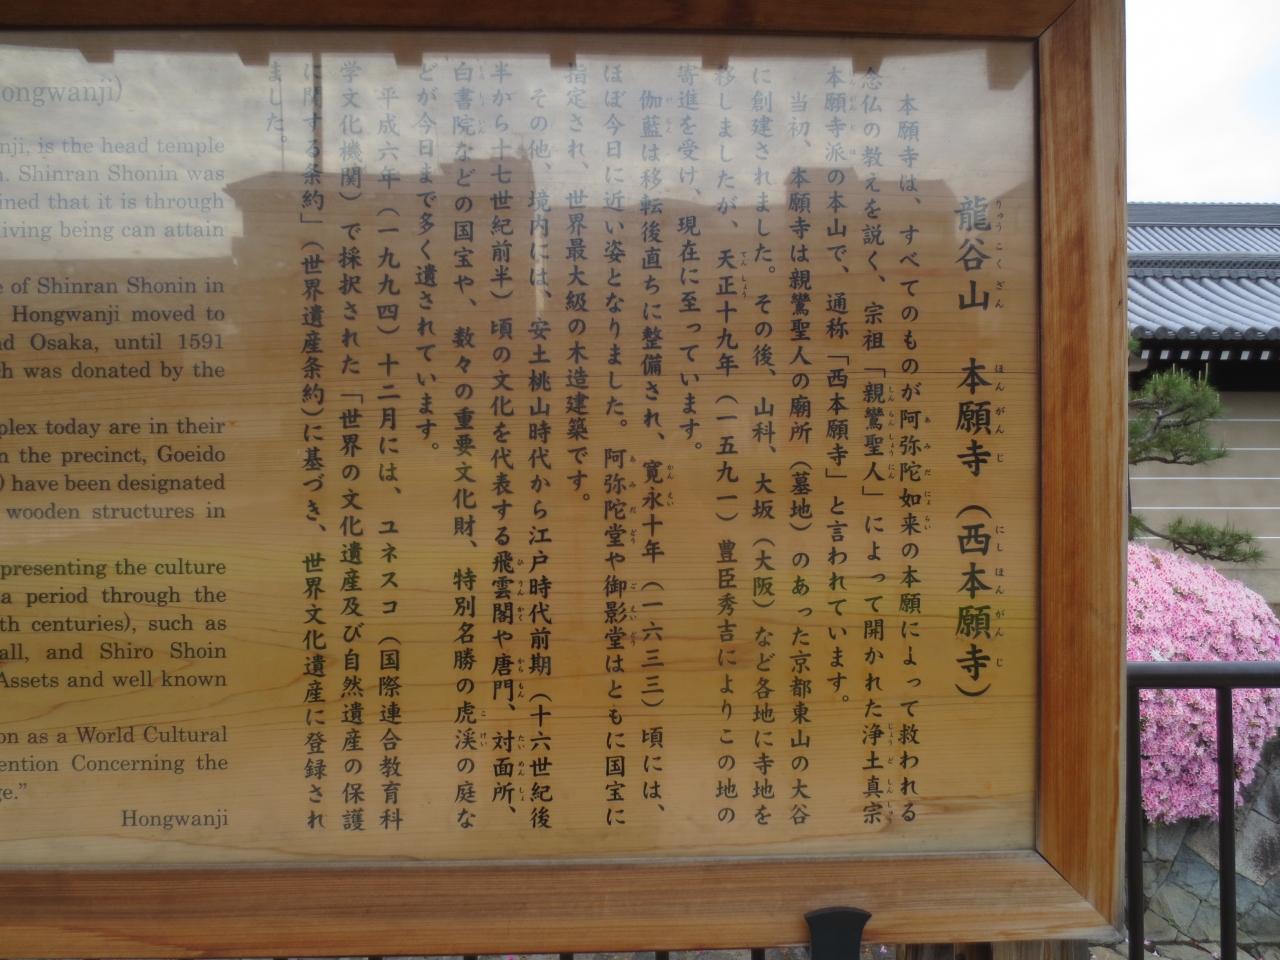 龍谷山 本願寺（西本願寺）
本願寺は、すべてのものが阿弥陀如来の本願によって救われる
念仏の教えを説く、宗祖「親鸞聖人」によって開かれた浄土真宗
本願寺派の本山で、通称「西本願寺」と言われています。
当初、本願寺は親鸞聖人の廟所（墓地）のあった京都東山の大谷
に創建されました。その後、山科、大坂（大阪）など各地に寺地を
移しましたが、天正十九年（一五九一）豊臣秀吉によりこの地の
寄進を受け、現在に至っています。
伽藍は移転後直ちに整備され、寛永十年（一六三三）頃には、
ほぼ今日に近い姿となりました。阿弥陀堂や御影堂はともに国宝に
指定され、世界最大級の木造建築です。
その他、境内には、安土桃山時代から江戸時代前期（十六世紀後
半から十七世紀前半）頃の文化を代表する飛雲閣や唐門、対面所、
白書院などの国宝や、数々の重要文化財、特別名勝の虎渓の庭な
どが今日まで多く遺されています。
平成六年（一九九四）十二月には、ユネスコ（国際連合教育科
学文化機関）で採択された「世界の文化遺産及び自然遺産の保護
に関する条約」（世界遺産条約）に基づき、世界文化遺産に登録され
ました。
ongwanji)
nji, is the head temple
n. Shinran Shonin was
ined that it is through
living being can attain
e of Shinran Shonin in
Hongwanji moved to
nd Osaka, until 1591
ch was donated by the
plex today are in their
n the precinct, Goeido
) have been designated
wooden structures in
presenting the culture
a period through the
th centuries), such as
all, and Shiro Shoin
Assets and well known
on as a World Cultural
vention Concerning the
ge."
Hongwanji